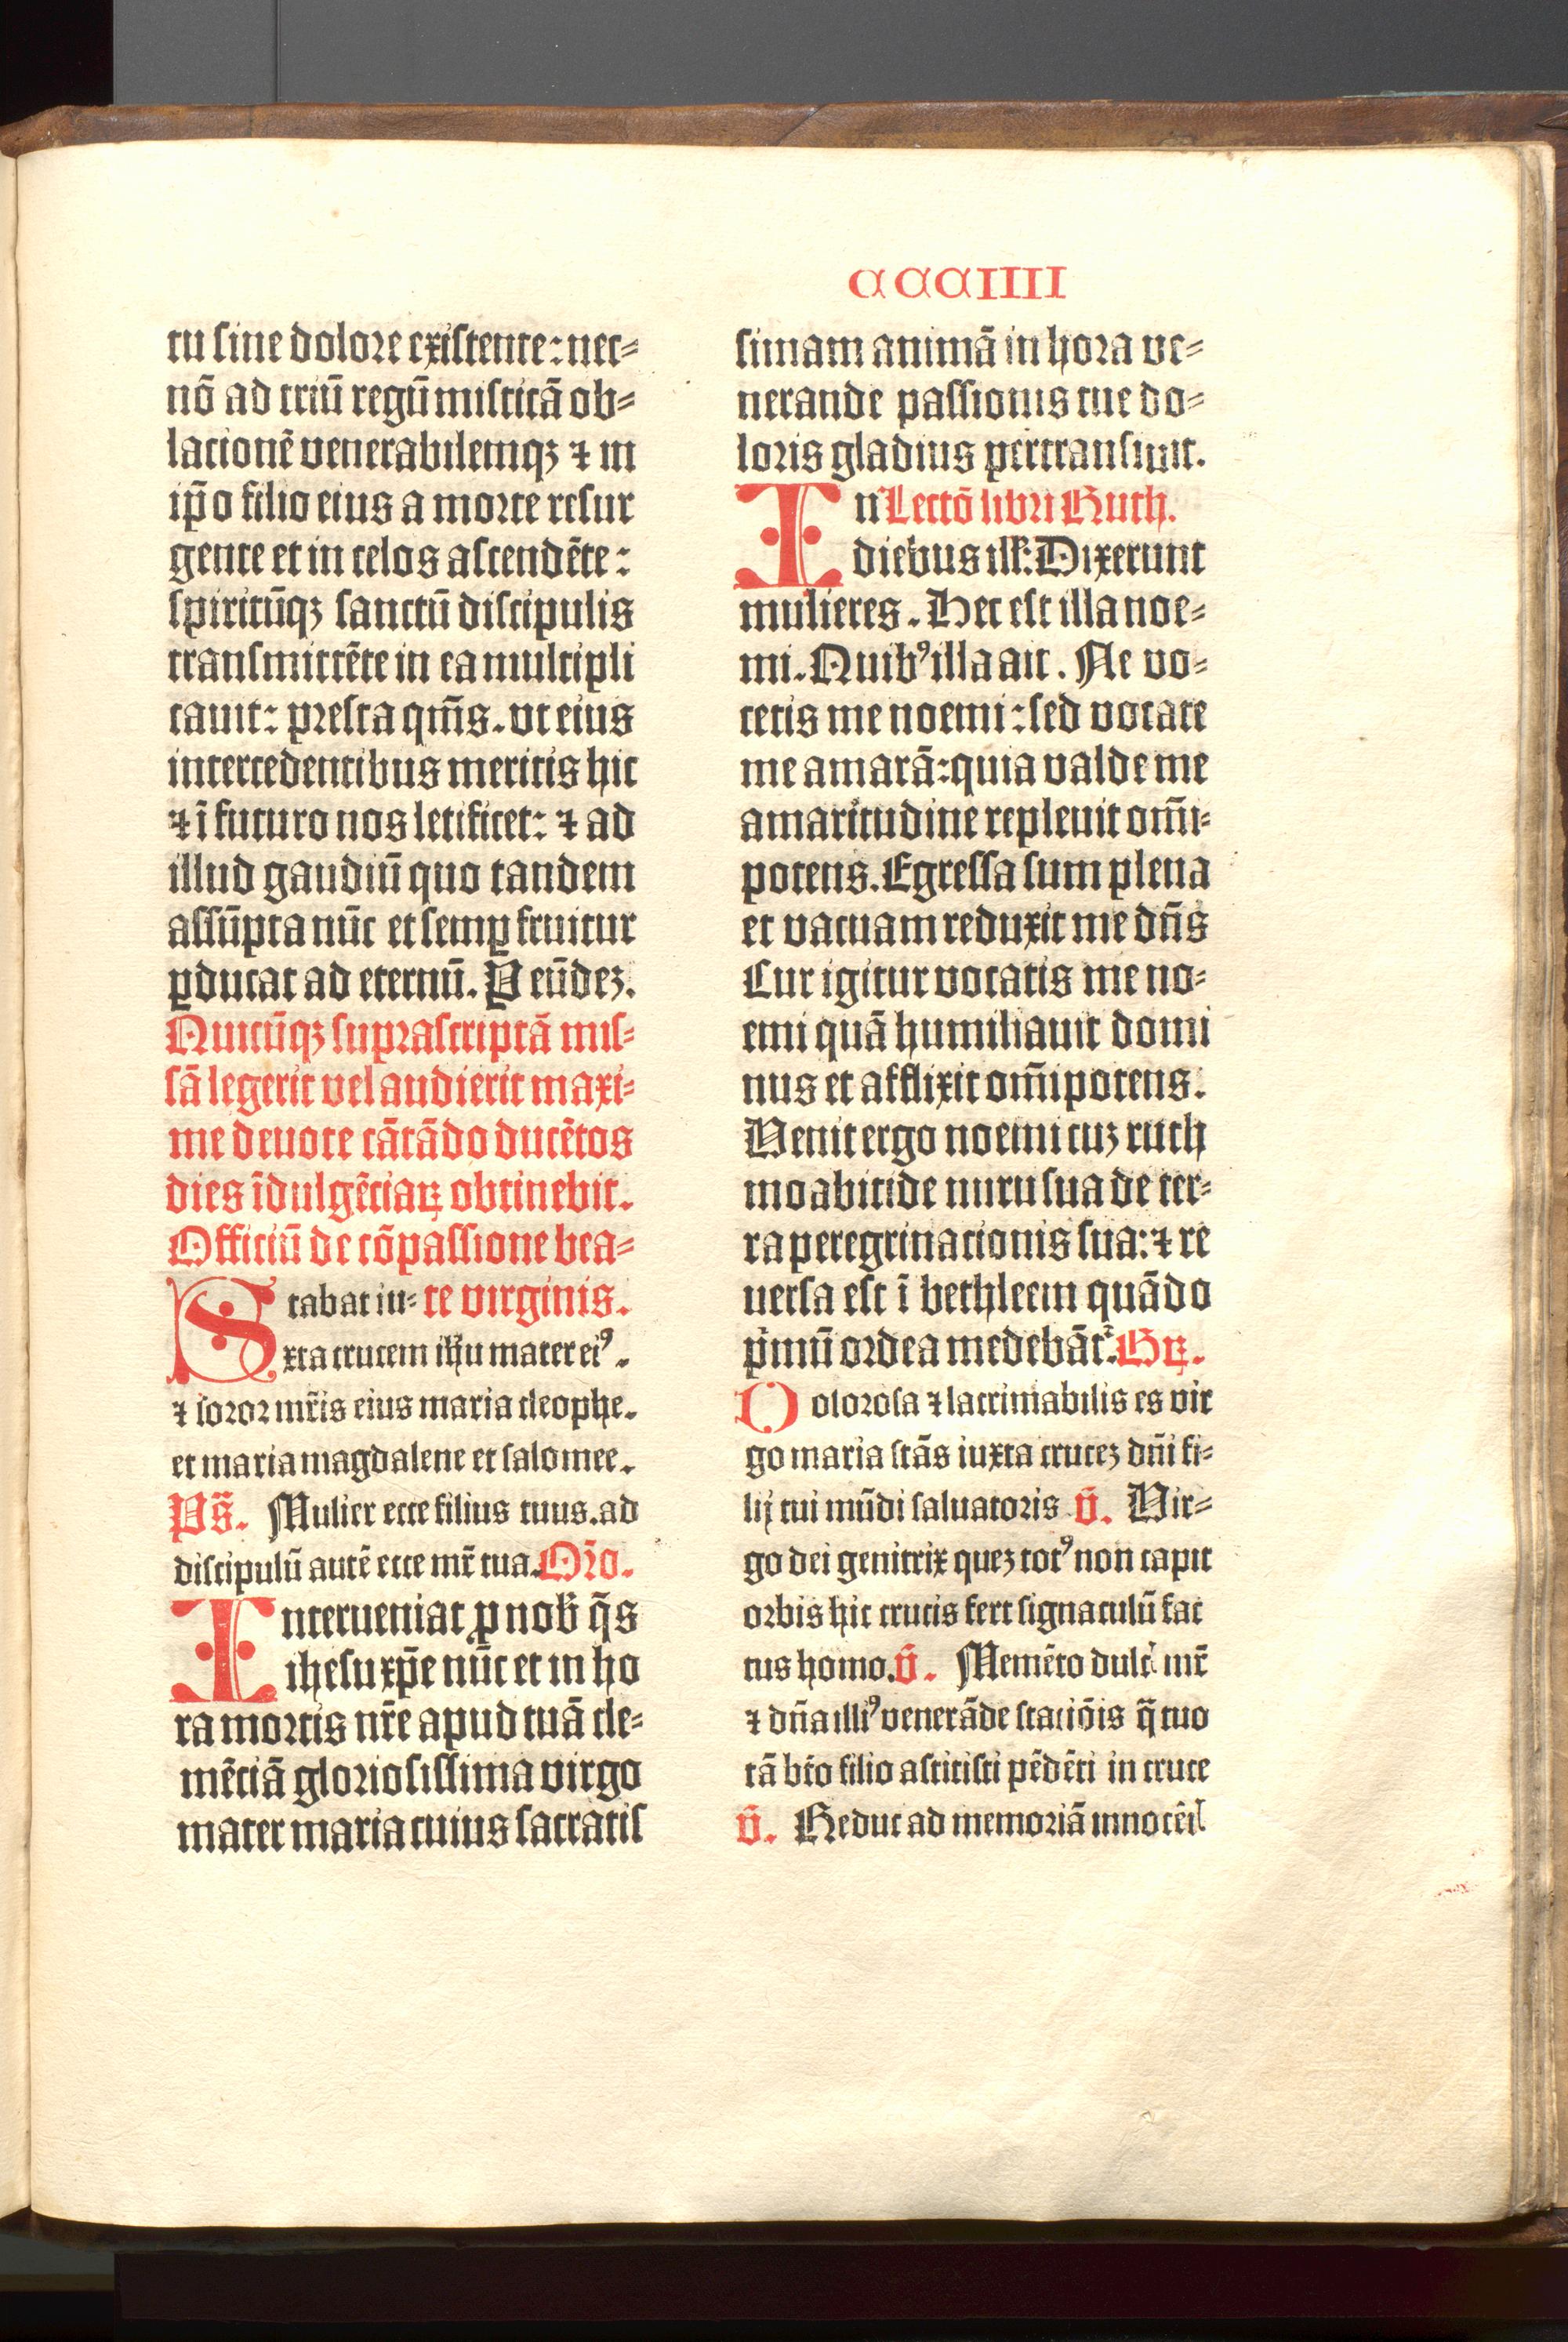 CCCIIII
tu sine dolore existente: nec⸗
nō ad triū regū misticā ob⸗
lacionē venerabilemqȝ ⁊ in
ip̄o filio eius a morte resur
gente et in celos ascendēte:
spiritūqȝ sanctū discipulis
transmittēte in ea multipli
cauit: presta qm̄s. vt eius
intercedentibus meritis hic
⁊ ī futuro nos letificet: ⁊ ad
illud gaudiū quo tandem
assūpta nūc et semꝑ fruitur
ꝑducat ad eternū. P eūdeȝ.
Quicūqȝ suprascriptā mis⸗
sā legerit vel audierit maxi⸗
me deuote cātādo ducētos
dies īdulgētiaꝝ obtinebit.
Officiū de cōpassione bea⸗
te virginis.
Stabat iu⸗
xta crucem ihu mater eiꝰ.
⁊ soror mr̄is eius maria cleophe.
et maria magdalene et salomee.
Ps̄. Mulier ecce filius tuus. ad
discipulū autē ecce mr̄ tua. Oro.
Interueniat ꝓ nob q̄s
ihesu xp̄e nūc et in ho
ra mortis nr̄e apud tuā cle⸗
mēciā gloriosissima virgo
mater maria cuius sacratis
simam animā in hora ve⸗
nerande passionis tue do⸗
loris gladius pertransiuit.
Lectō libri Ruth.
In
diebus ill: Dixerunt
mulieres. Hec est illa noe⸗
mi. Quibꝰ illa ait. Ne vo⸗
cetis me noemi: sed vocate
me amarā: quia valde me
amaritudine repleuit om̄i⸗
potens. Egressa sum plena
et vacuam reduxit me dn̄s
Cur igitur vocatis me no⸗
emi quā humiliauit domi
nus et afflixit om̄ipotens.
Venit ergo noemi cuȝ ruth
moabitide nuru sua de ter⸗
ra peregrinacionis sua: ⁊ re
uersa est ī bethleem quādo
pimū ordea medebāt. Gꝝ.
Dolorosa ⁊ lacrimabilis es vir
go maria stās iuxta cruceȝ dn̄i fi⸗
lij tui mūdi saluatoris v̄. Vir⸗
go dei genitrix queȝ totꝰ non capit
orbis hic crucis fert signaculū fac
tus homo. v̄. Memēto dulc mr̄
⁊ dn̄a illiꝰ venerāde staciōis q̄ tuo
tā bt̄o filio astitisti pēdēti in cruce
v̄. Reduc ad memoriā innocēs